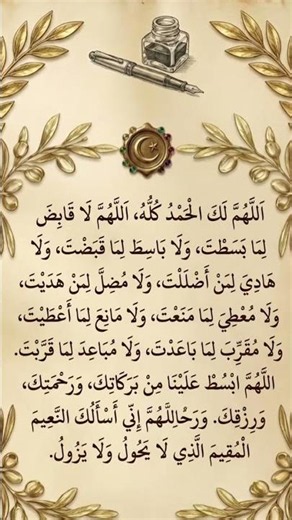 اَللَّهُمَّ لَكَ الْحَمْدُ كُلُّهُ، اَللَّهُمَّ لَا قَابِضَ
لِمَا بَسَطْتَ، وَلَا بَاسِطَ لِمَا قَبَضْتَ، وَلَا
هَادِيَ لِمَنْ أَضْلَلْتَ، وَلَا مُضِلَّ لِمَنْ هَدَيْتَ،
وَلَا مُعْطِيَ لِمَا مَنَعْتَ، وَلَا مَانِعَ لِمَا أَعْطَيْتَ،
وَلَا مُقَرِّبَ لِمَا بَاعَدْتَ، وَلَا مُبَاعِدَ لِمَا قَرَّبْتَ.
اللَّهُمَّ ابْسُطْ عَلَيْنَا مِنْ بَرَكَاتِكَ، وَرَحْمَتِكَ،
وَرِزْقِكَ. وَرَحُالِلَّهُمَّ إِنِّي أَسْأَلُكَ النَّعِيمَ
الْمُقِيمَ الَّذِي لَا يَحُولُ وَلَا يَزُولُ.